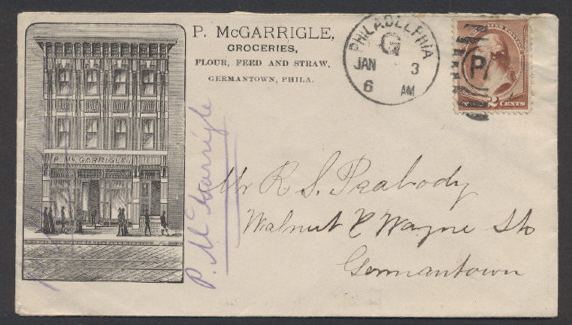 P. McGARRIGLE,
GROCERIES,
FLOUR, FEED AND STRAW,
GERMANTOWN, PHILA.
P. McGARRIGLE
PHILADELPHIA
G
JAN 3
6 AM
P
2 CENTS
P. McGarrigle
Mr R. S. Peabody
Walnut & Wayne Sts
Germantown